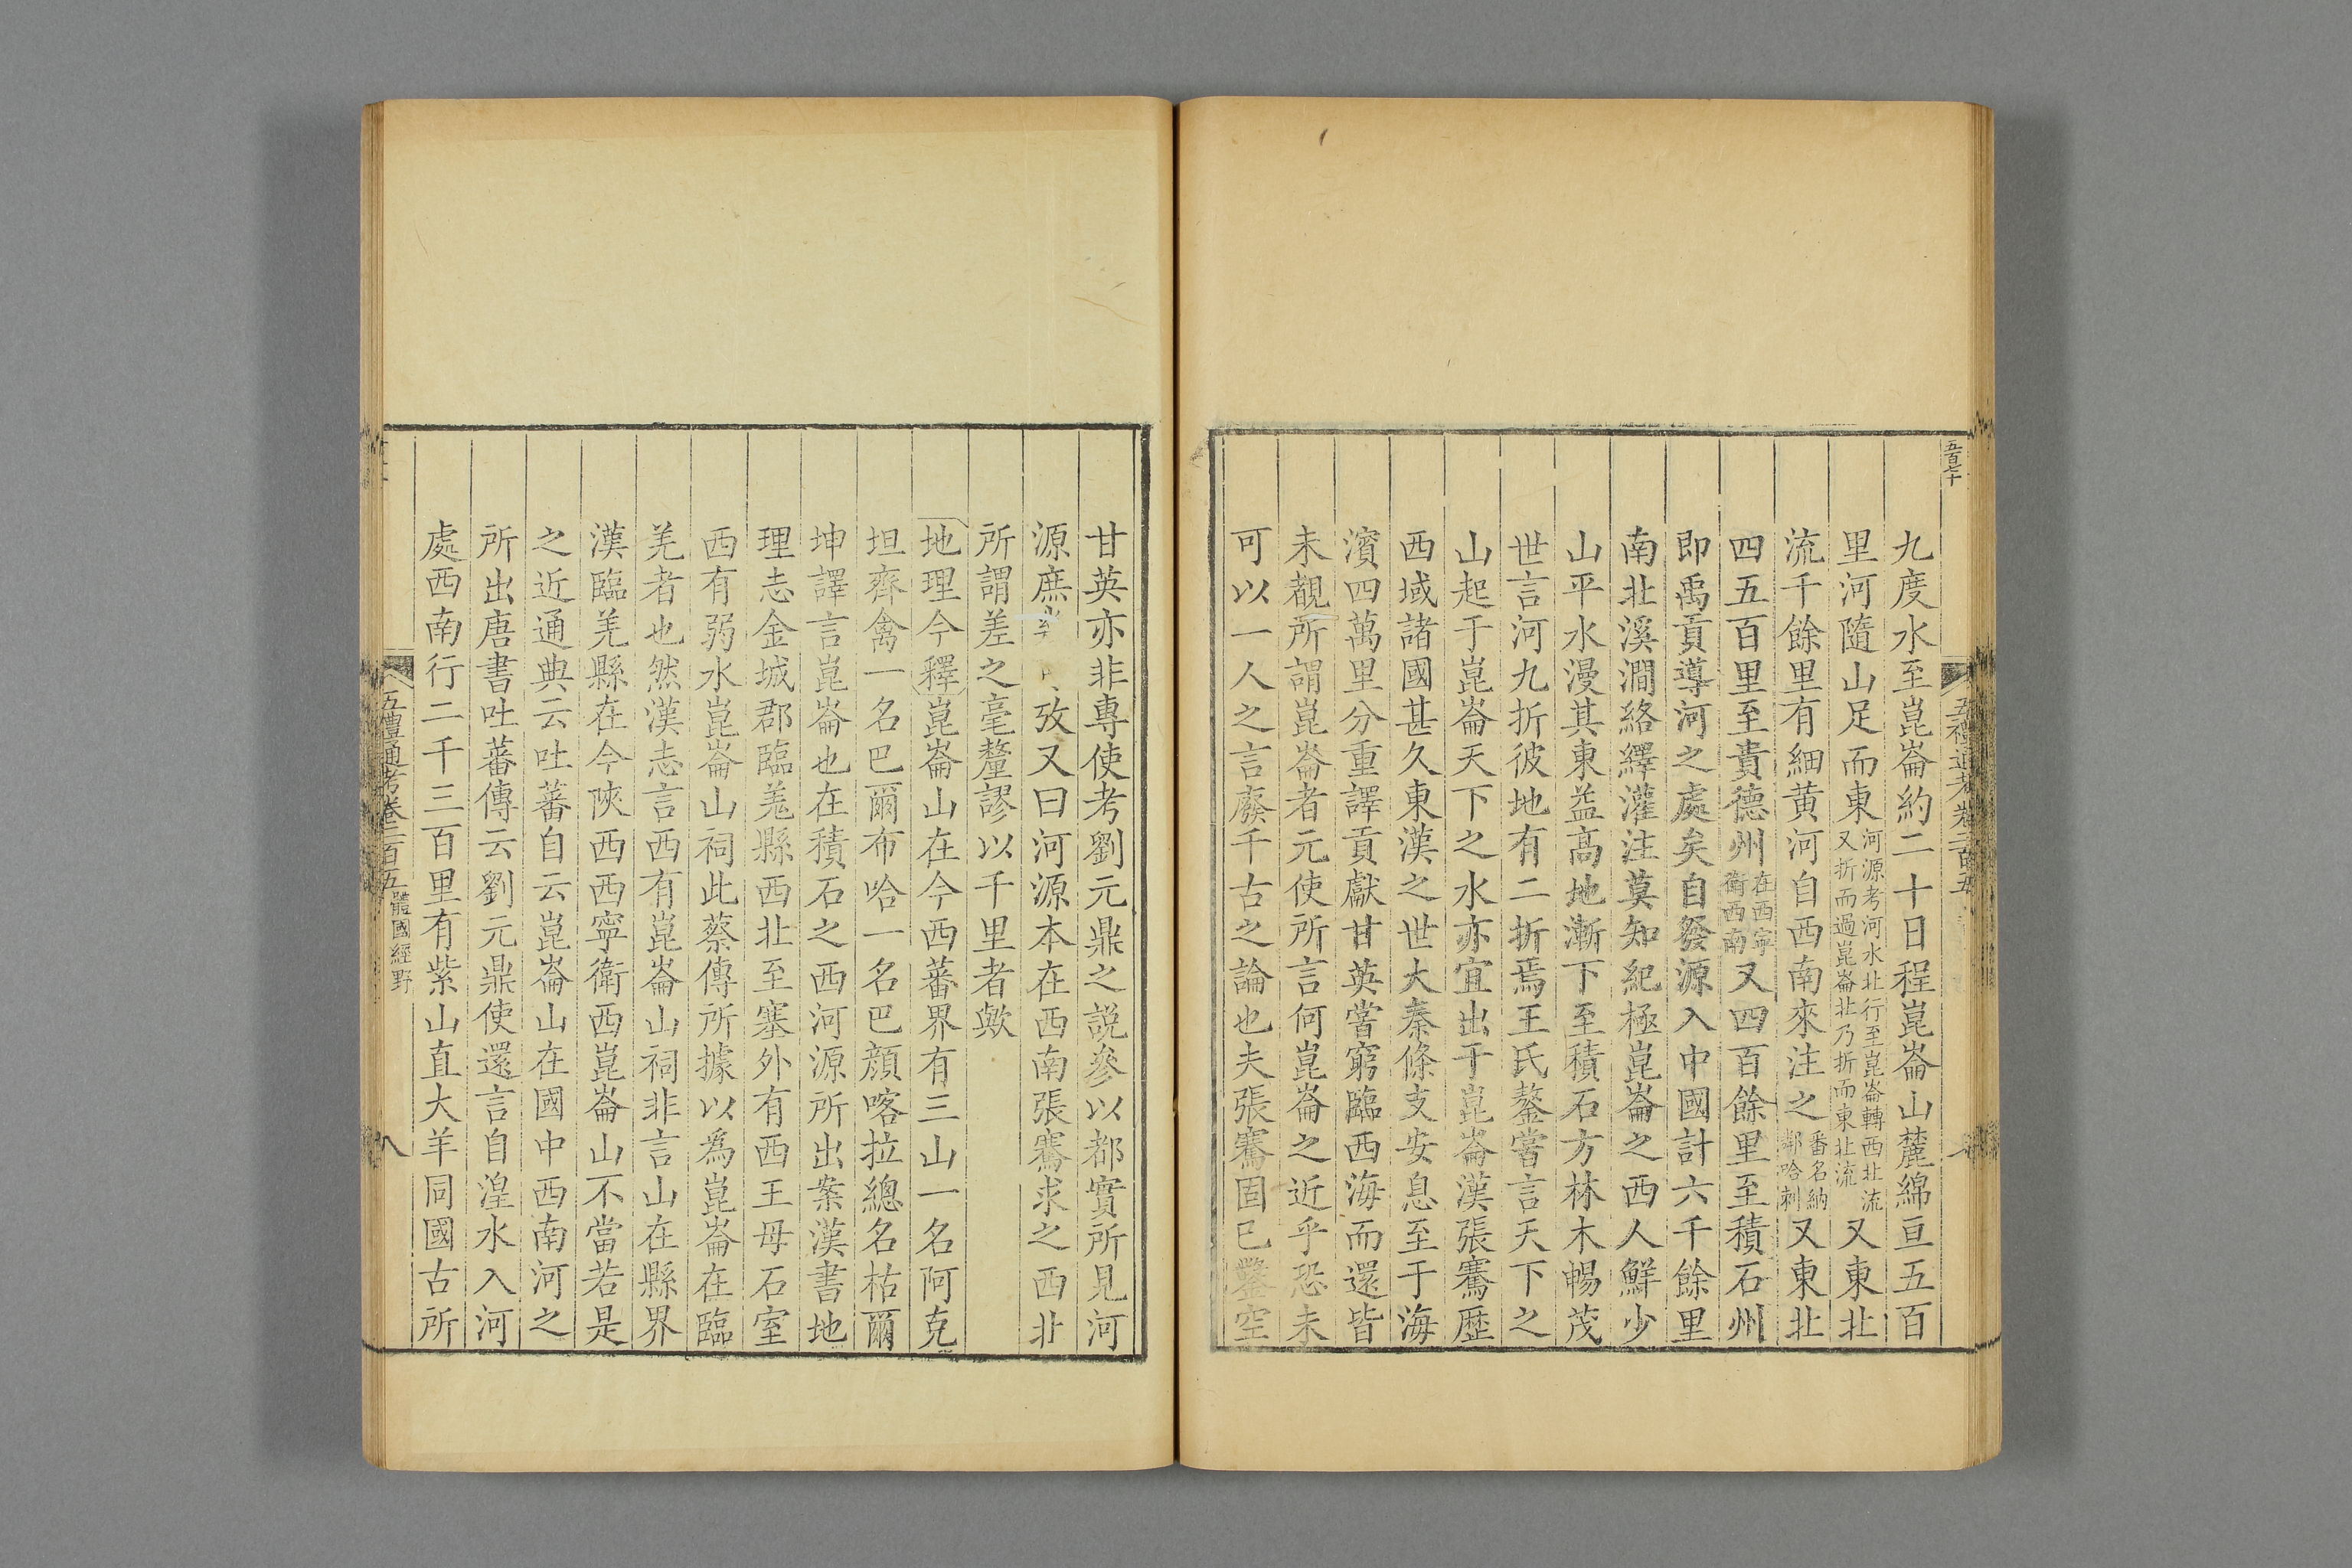 五百七十
九度水至崑崙約二十日程崑崙山麓綿亘五百
里河隨山足而東河源考河水北行至崑崙轉西北流又折而過崑崙北乃折而東北流又東北
流千餘里有細黄河自西南來注之番名納鄰哈剌又東北
四五百里至貴德州在西寧衛西南又四百餘里至積石州
即禹貢導河之處矣自發源入中國計六千餘里
南北溪澗絡繹灌注莫知紀極崑崙之西人鮮少
山平水漫其東益高地漸下至積石方林木暢茂
世言河九折彼地有二折焉王氏鏊嘗言天下之
山起于崑崙天下之水亦宜出于崑崙漢張騫歷
西域諸國甚久東漢之世大秦條支安息至于海
濱四萬里分重譯貢獻甘英嘗窮臨西海而還皆
未覩所謂崑崙者元使所言何崑崙之近乎恐未
可以一人之言廢千古之論也夫張騫固已鑿空
甘英亦非專使考劉元鼎之説參以都實所見河
源庶攷又曰河源本在西南張騫求之西北
所謂差之毫釐謬以千里者歟
地理今釋崑崙山在今西蕃界有三山一名阿克
坦齊禽一名巴爾布哈一名巴顔喀拉總名枯爾
坤譯言崑崙也在積石之西河源所出案漢書地
理志金城郡臨羌縣西北至塞外有西王母石室
西有弱水崑崙山祠此蔡傳所據以爲崑崙在臨
羌者也然漢志言西有崑崙山祠非言山在縣界
漢臨羌縣在今陝西西寧衛西崑崙山不當若是
之近通典云吐蕃自云崑崙山在國中西南河之
所出唐書吐蕃傳云劉元鼎使還言自湟水入河
處西南行二千三百里有紫山直大羊同國古所
五禮通考卷二百五 體國經野 八